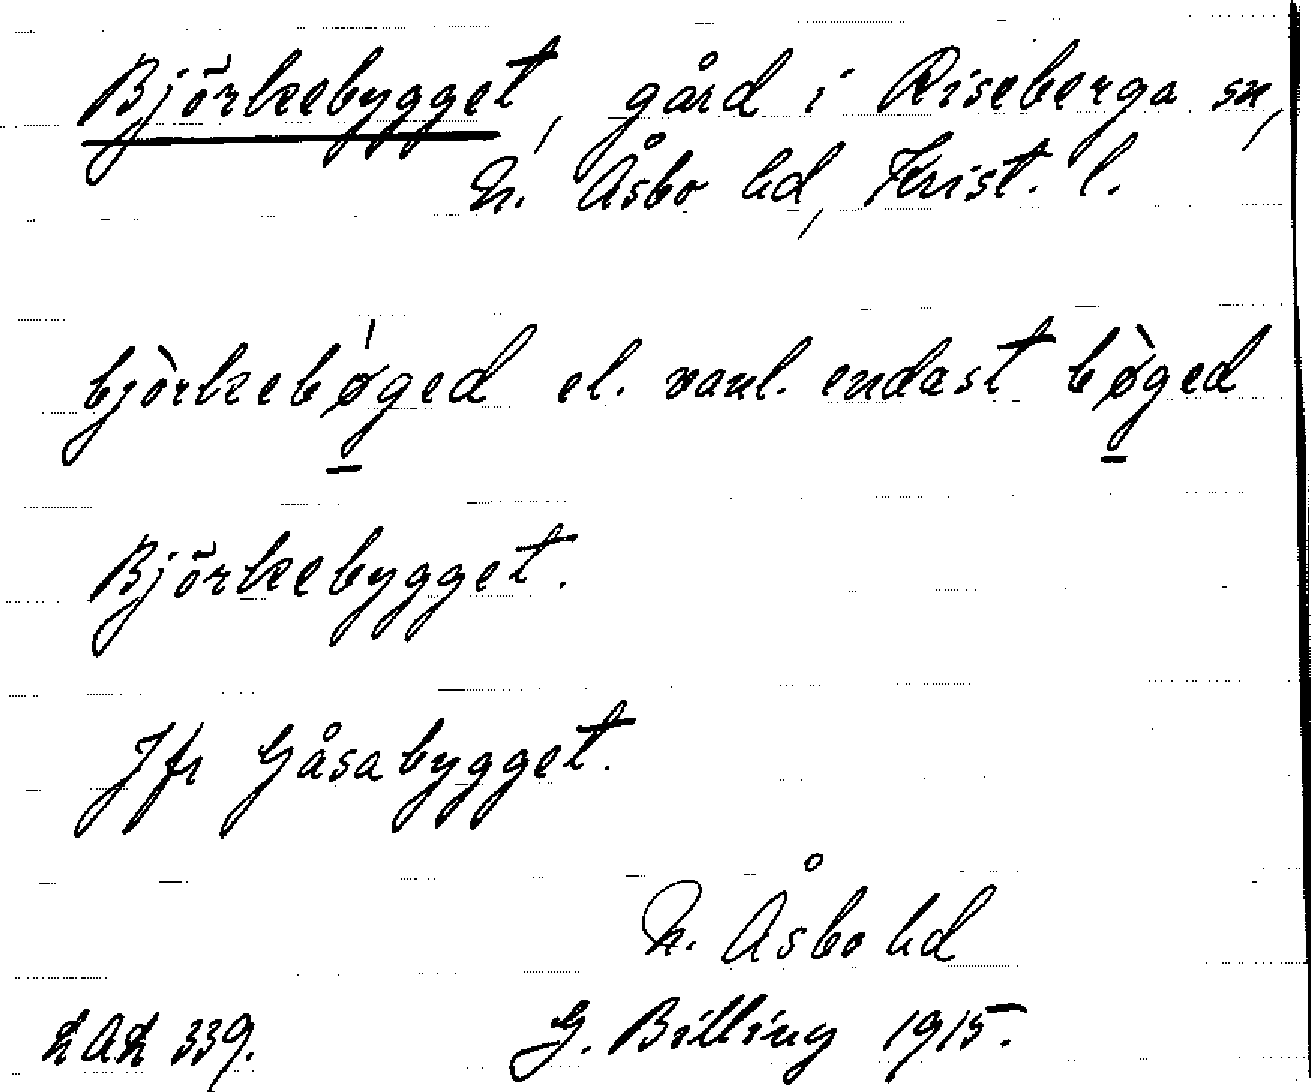 Björkebygget, gård i Riseberga sn,
N. Åsbo hd, Krist. l.
bjòrkebǿ̲ged el. vanl. endast bø̲̀ged
Björkebygget.
Jfr Gåsabygget.
N. Åsbo hd
LAL 339. G. Billing 1915.